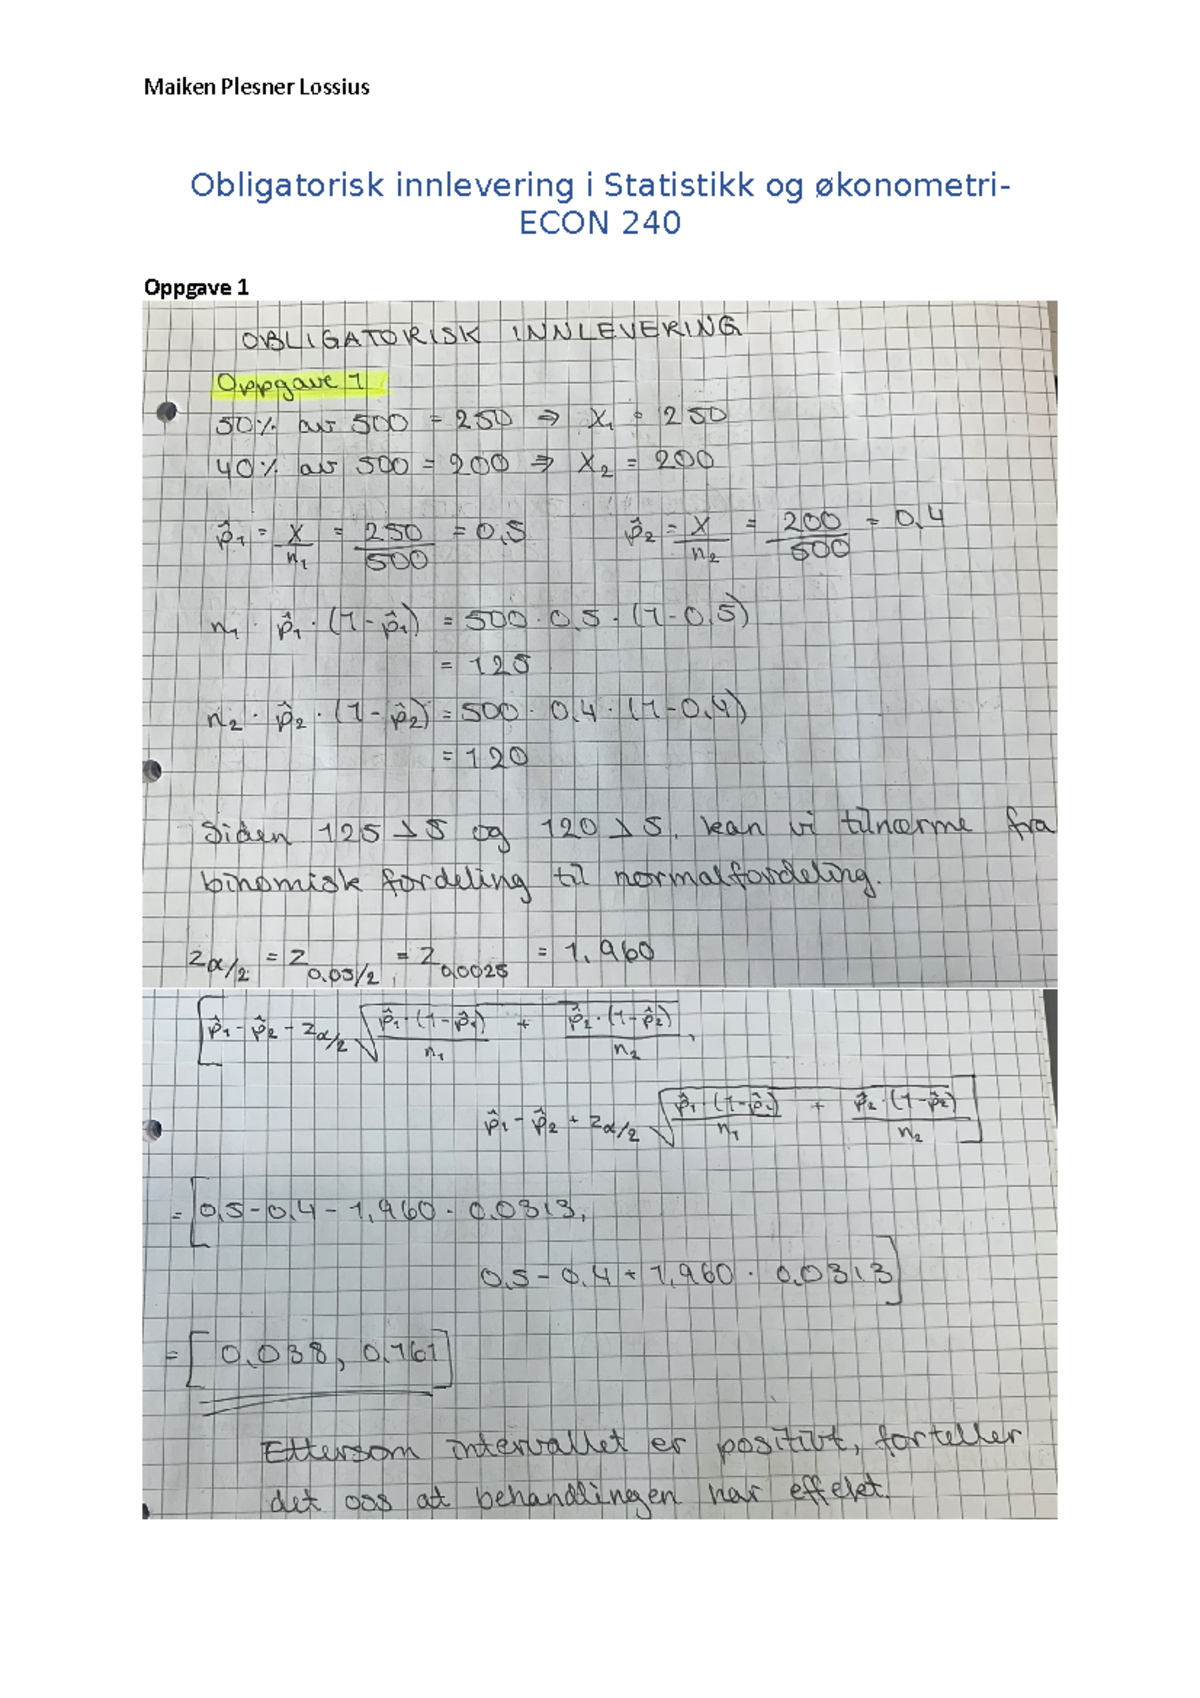 Maiken Plesner Lossius
Obligatorisk innlevering i Statistikk og økonometri-
ECON 240
Oppgave 1
OBLIGATORISK INNLEVERING
Oppgave 1
50% av 500 = 250 => X₁ = 250
40% av 500 = 200 => X₂ = 200
p̂₁ = X/n₁ = 250/500 = 0,5 p̂₂ = X/n₂ = 200/500 = 0,4
n₁ · p̂₁ · (1-p̂₁) = 500 · 0,5 · (1-0,5)
= 125
n₂ · p̂₂ · (1-p̂₂) = 500 · 0,4 · (1-0,4)
= 120
Siden 125 > 5 og 120 > 5, kan vi tilnærme fra
binomisk fordeling til normalfordeling.
z_α/2 = z_0,05/2 = z_0,0025 = 1,960
[p̂₁ - p̂₂ - z_α/2 √(p̂₁·(1-p̂₁)/n₁ + p̂₂·(1-p̂₂)/n₂),
p̂₁ - p̂₂ + z_α/2 √(p̂₁·(1-p̂₁)/n₁ + p̂₂·(1-p̂₂)/n₂)]
= [0,5-0,4-1,960 · 0,0313,
0,5-0,4+1,960 · 0,0313]
= [0,038, 0,161]
Ettersom intervallet er positivt, forteller
det oss at behandlingen har effekt.